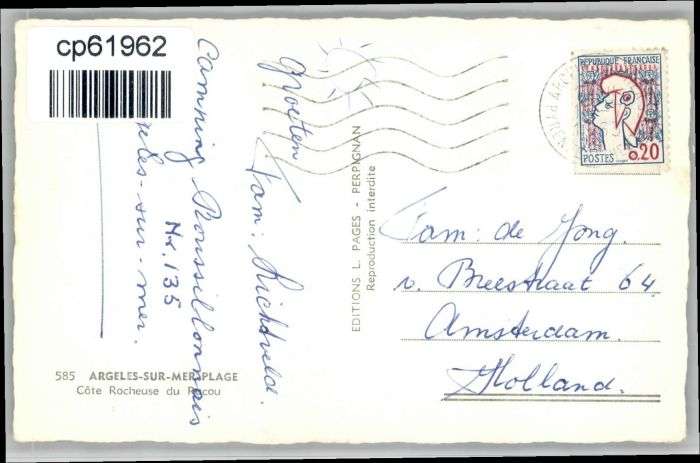 cp61962
Camping Roussillonnais
Nr. 135
-sur-mer.
groeten
Fam: Lichtveld.
585 ARGELES-SUR-MER-PLAGE
Côte Rocheuse du Racou
EDITIONS L. PAGES - PERPIGNAN
Reproduction interdite
REPUBLIQUE FRANÇAISE
POSTES
0,20
Fam: de Jong.
v. Breestraat 64.
Amsterdam.
Holland.